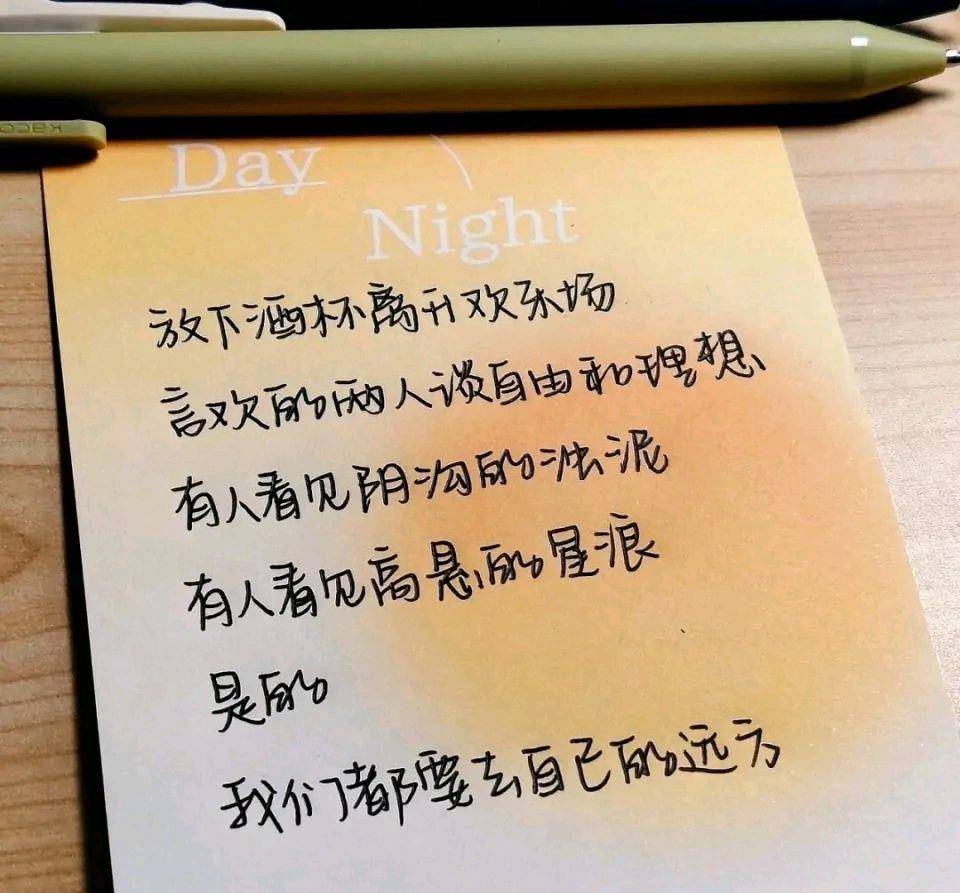 KACO
Day
Night
放下酒杯离开欢乐场
言欢的两人谈自由和理想
有人看见阴沟的浊泥
有人看见高悬的星浪
是的
我们都要去自己的远方